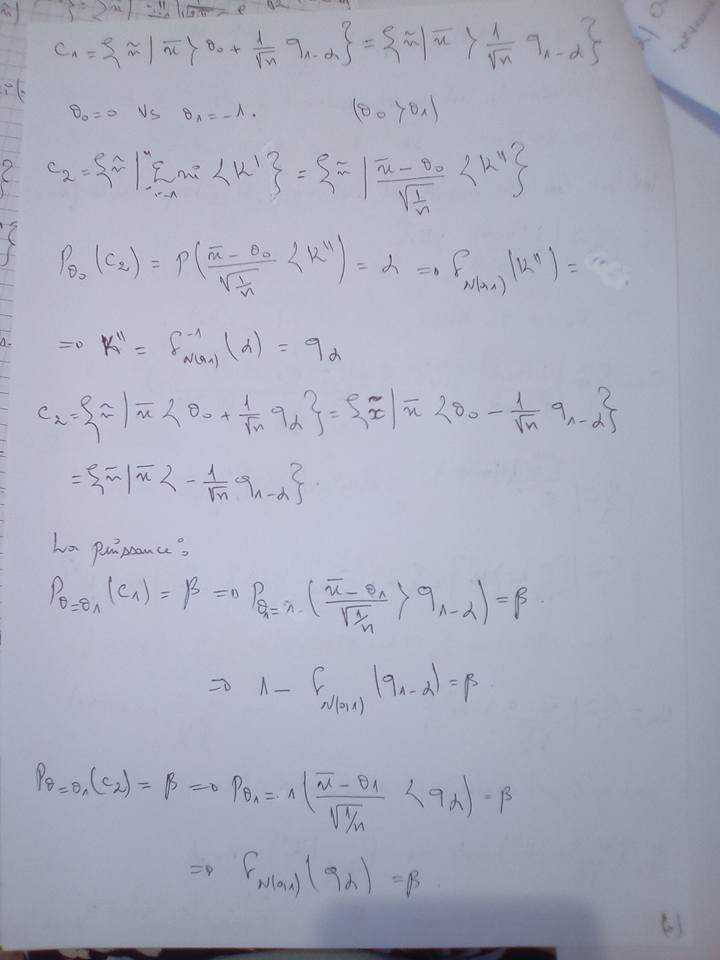 C₁ = { x̃ | x̄ > θ₀ + 1/√n q₁₋α } = { x̃ | x̄ > 1/√n q₁₋α }
θ₀ = 0 Vs θ₁ = -1. (θ₀ > θ₁)
C₂ = { x̃ | ⁿΣᵢ₌₁ xi < K' } = { x̃ | (x̄ - θ₀)/√(1/n) < K'' }
P_θ₀ (C₂) = P( (x̄ - θ₀)/√(1/n) < K'' ) = α => F_N(0,1) (K'') =
=> K'' = F⁻¹_N(0,1) (α) = qα
C₂ = { x̃ | x̄ < θ₀ + 1/√n qα } = { x̃ | x̄ < θ₀ - 1/√n q₁₋α }
= { x̃ | x̄ < - 1/√n q₁₋α }.
La puissance :
P_θ=θ₁ (C₁) = β => P_θ₁=1 ( (x̄ - θ₁)/√(1/n) > q₁₋α ) = β.
=> 1 - F_N(0,1) (q₁₋α) = β
P_θ=θ₁ (C₂) = β => P_θ₁=-1 ( (x̄ - θ₁)/√(1/n) < qα ) = β
=> F_N(0,1) (qα) = β